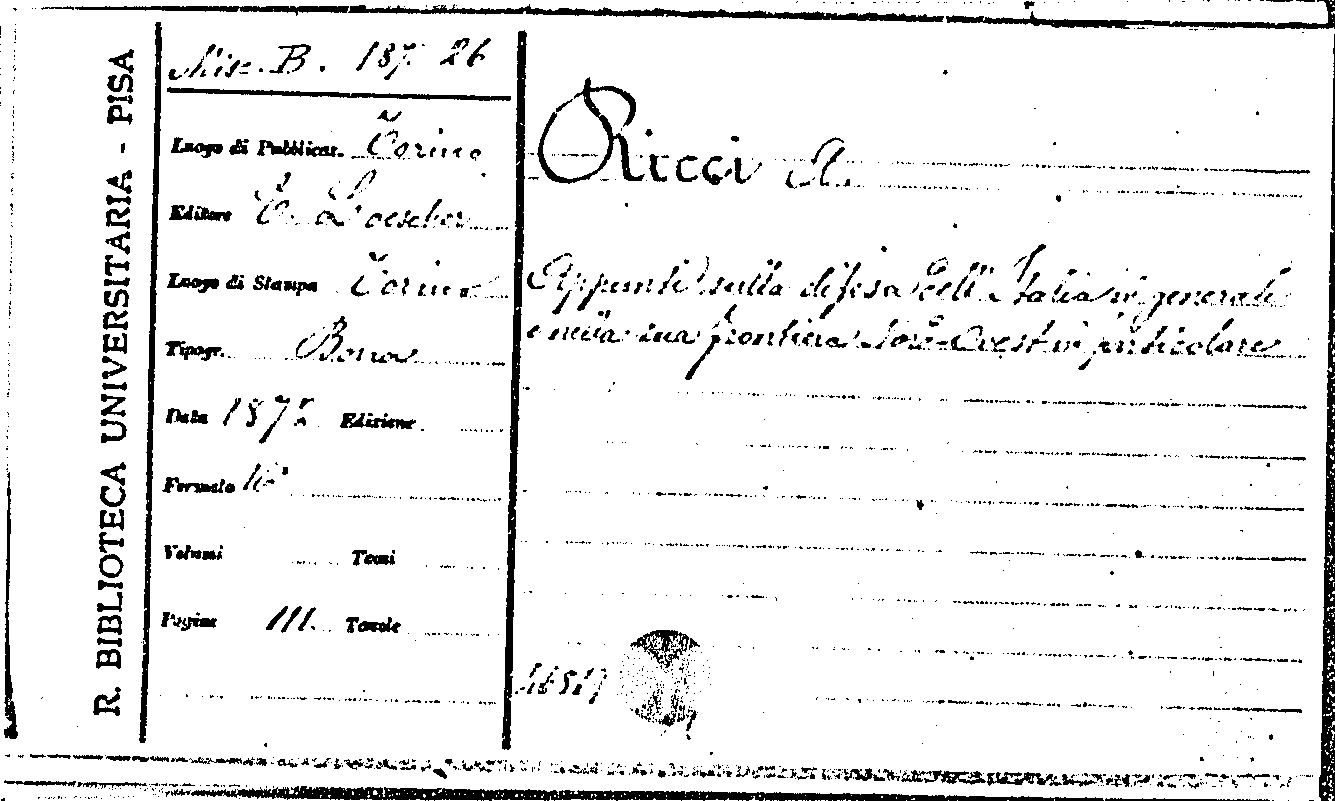 R. BIBLIOTECA UNIVERSITARIA - PISA
Misc. B. 187. 26
Luogo di Pubblicaz. Torino
Editore E. Loescher
Luogo di Stampa Torino
Tipogr. Bona
Data 187 Edizione
Formato 16°
Volumi Tomi
Pagine 111. Tavole
Ricci A.
Appunti sulla difesa dell'Italia in generale
e nella sua frontiera Nord-Ovest in particolare